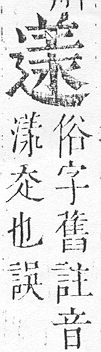 俗字舊註音
漾也誤